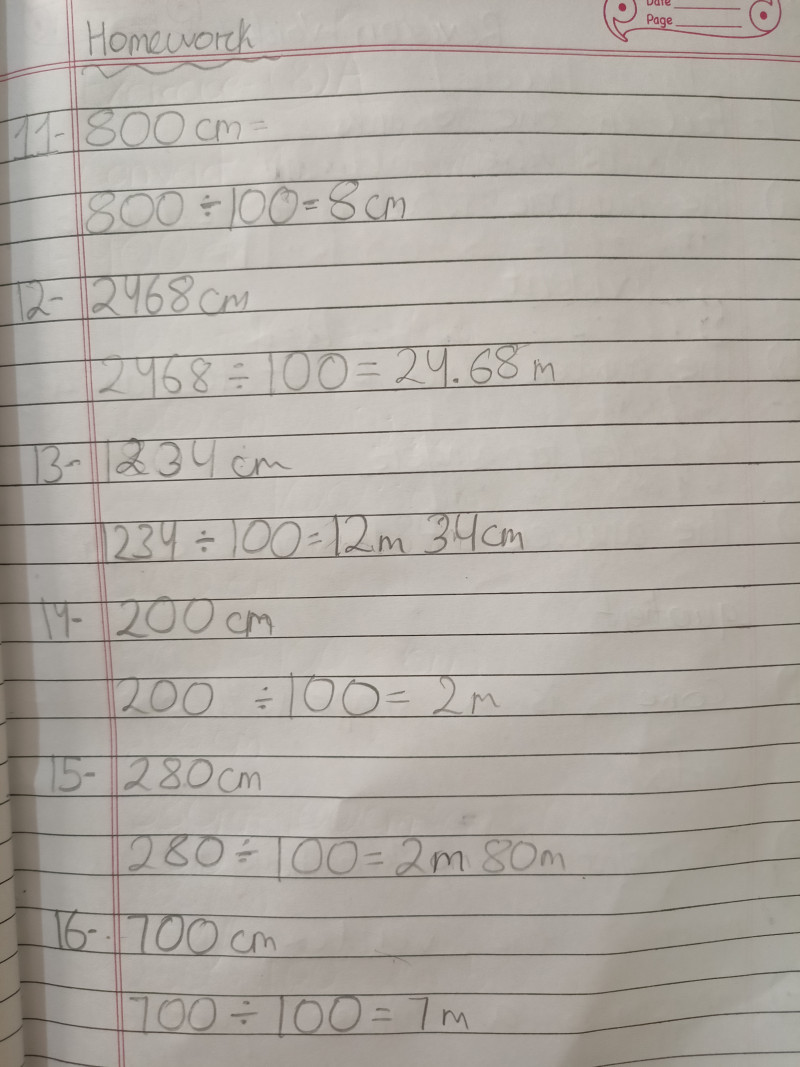 Date
Page
Homework
11- 800 cm =
800 ÷ 100 = 8 cm
12- 2468 cm
2468 ÷ 100 = 24.68 m
13- 1234 cm
1234 ÷ 100 = 12m 34cm
14- 200 cm
200 ÷ 100 = 2 m
15- 280 cm
280 ÷ 100 = 2m 80m
16- 700 cm
700 ÷ 100 = 7 m